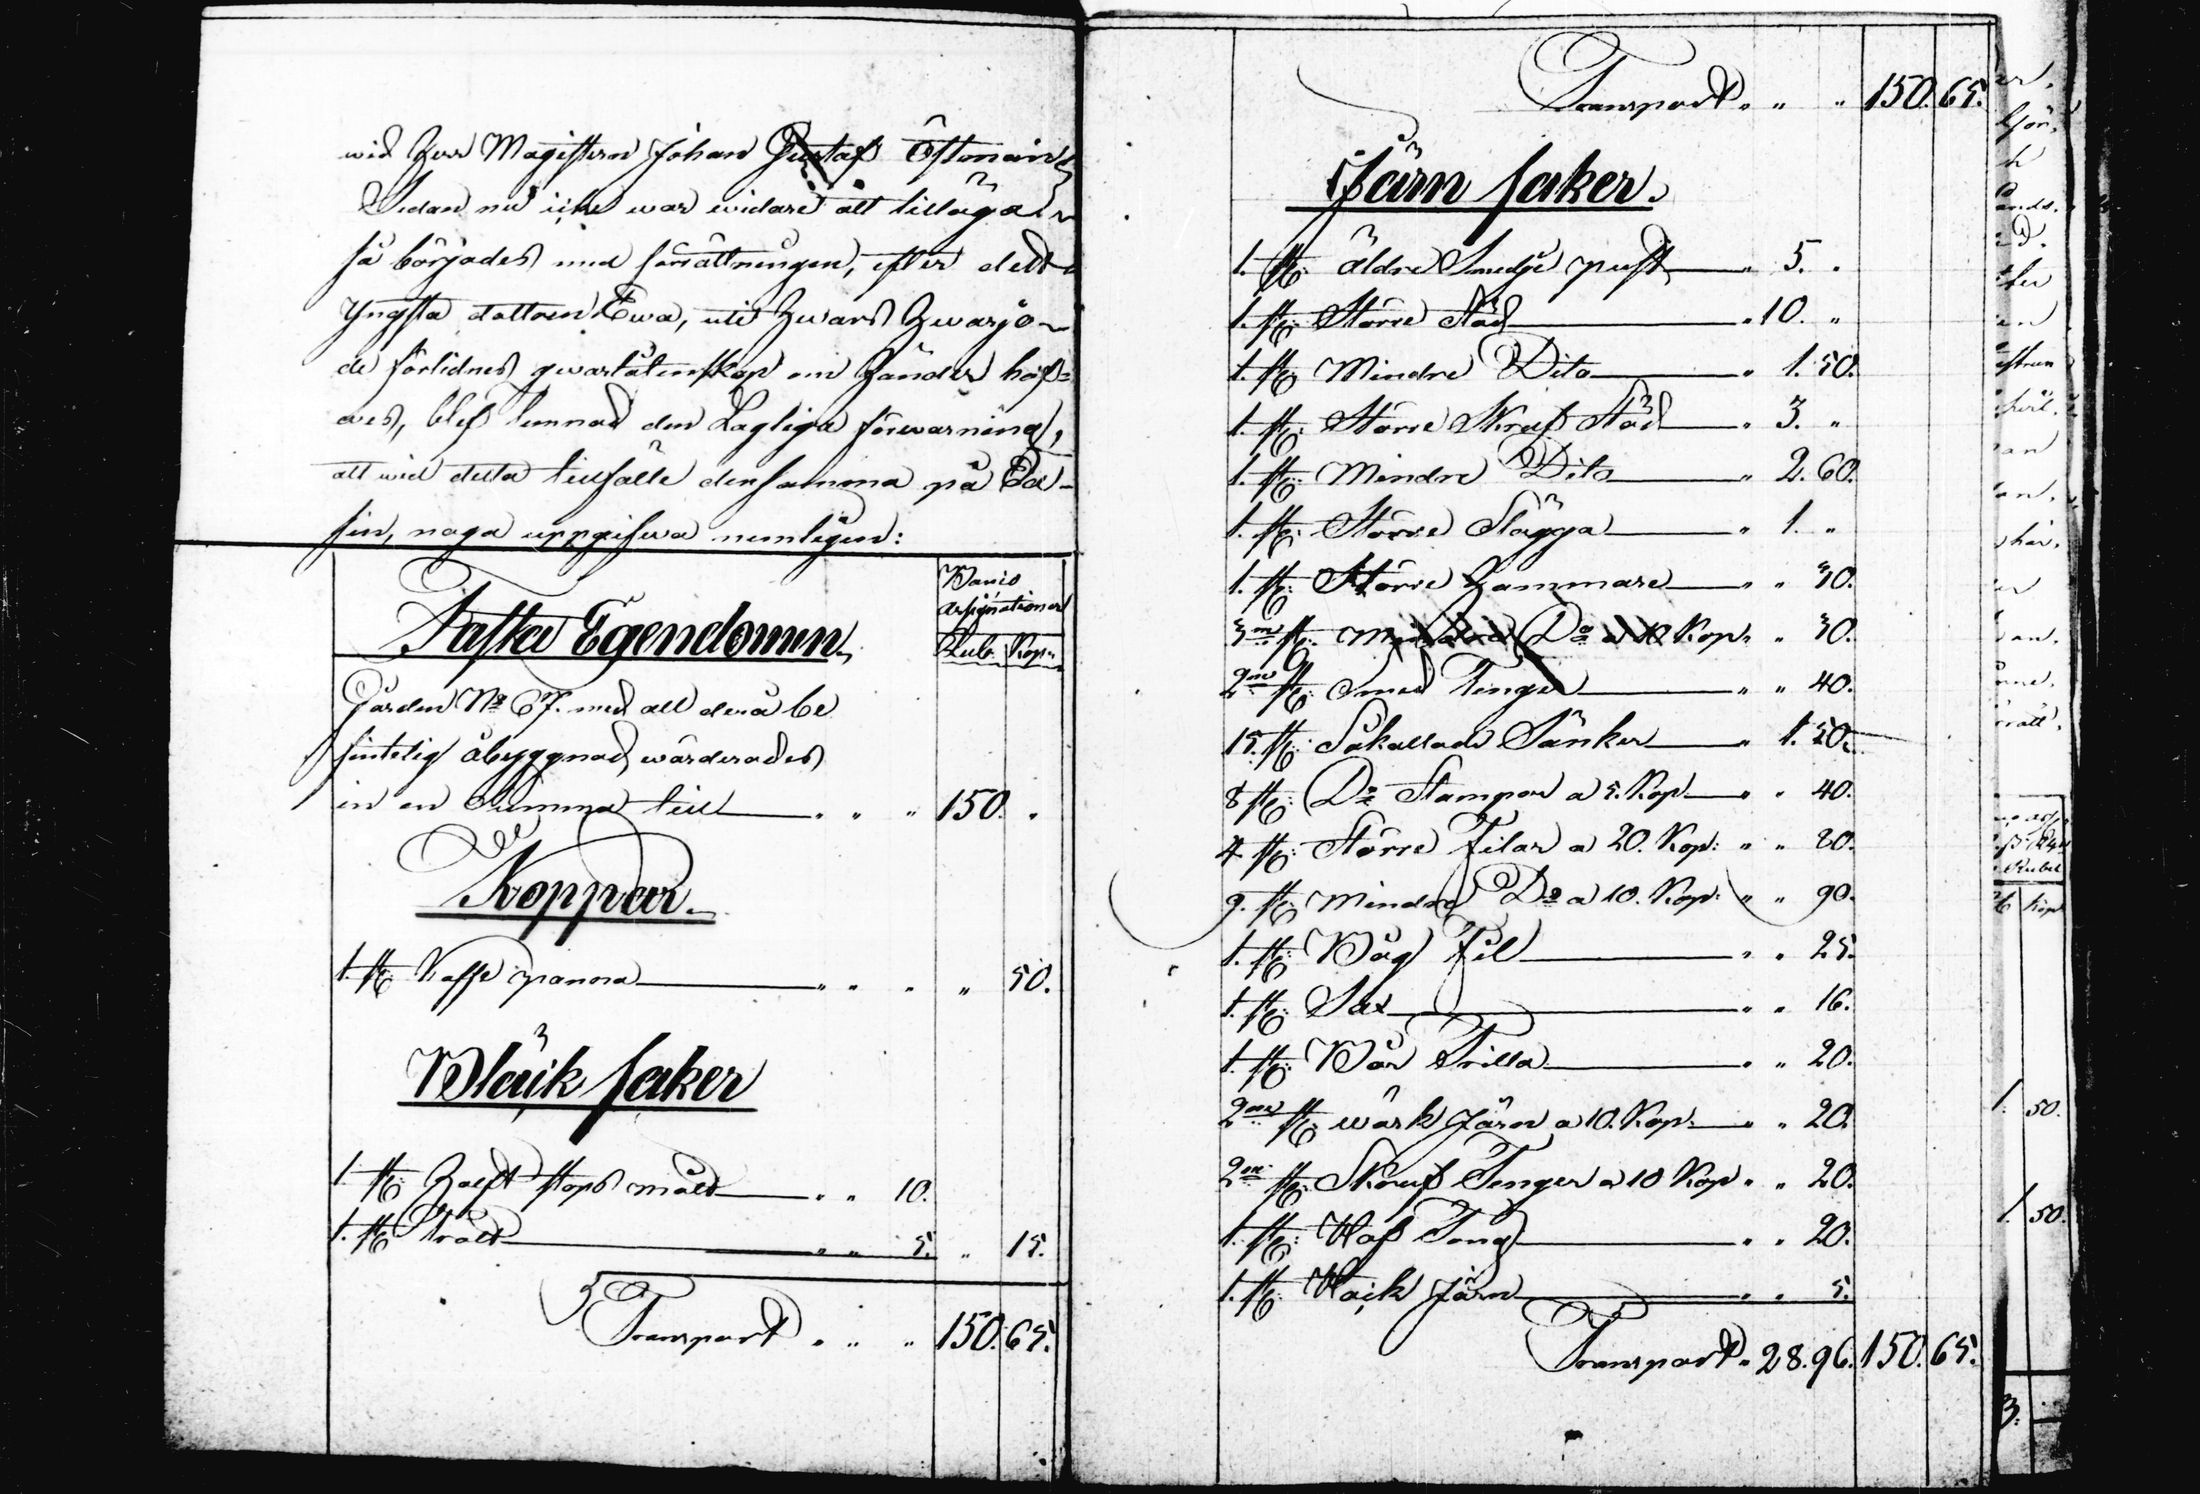 wid Herr Magistern Johan Gustaf Östman
Sedan nu icke war widare att tillägga
så börjades med förrättningen, efter dett
Yngsta dottren Ewa, uti Hwars Hwarjo
de förlidnes qwarlåtenskap om Händer haf=
des, blef lemnad den Lagliga förwarning,
att wid detta tillfälle densamma på Ed
sin, noga uppgifwa nemligen:
Banco
assignationer
Fasta Egendomen
Rub. Kop:
Gården No 67. med all derå be
fintelig åbyggnad, wärderades
in en Summa till " " " 150. "
Koppar
1. st: Kaffe panna " " " " 50.
Bläck saker
1 st: Halft stops mått " " 10.
1. st: tratt " " 5. " 15.
Transport " " " 150. 65.
Transport " " " 150. 65.
Järn saker
1. st: äldre Smedje pust " 5. "
1. st: Större Städ " 10. "
1. st: Mindre Dito " 1. 50.
1. st: Större Skruf Städ " 3. "
1. st: Mindre Dito " 2. 60.
1. st: Större Slägga " 1. "
1. st: Större Hammare " " 30.
3ne st: Mindre Do a 10 Kop: " 30.
2ne st: Smed Tenger " " 40.
15. st: Såkallade Sänker " 1. 50.
8 st: Do Stampar a 5. Kop " " 40.
4 st: Större Filar a 20. Kop: " " 80.
9. st: Mindre Do a 10. Kop: " " 90.
1. st: Båg Fil " " 25.
1. st: Sax " " 16.
1. st: Bår Drilla " " 20.
2ne st: wärk Järn a 10. Kop: " " 20.
2ne st: Skruf Tenger a 10 Kop " " 20.
1. st: Haf Tong " " 20.
1. st: Hack Järn " " 5.
Transport " 28. 96. 150. 65.
1. 50.
1. 50.